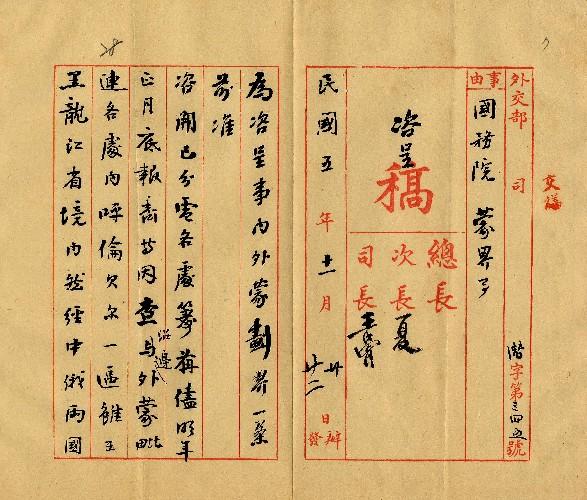 外交部 司
交儀
咨字第三四五號
事由
國務院 蒙界事
咨呈
稿
總長
次長 夏
司長
民國五年十一月 廿 廿二 日 辦 發
為咨呈事內外蒙劃界一案
前准
咨開已分電各處籌備儘明年
正月底報齊等因查與外蒙毗
連各處內呼倫貝爾一區雖在
黑龍江省境內然經中俄兩國
28